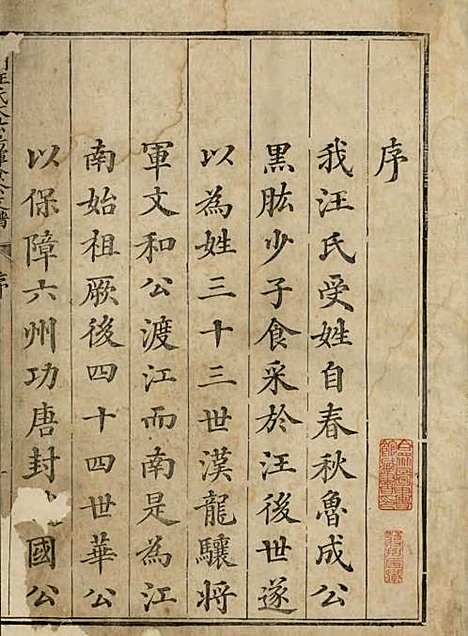 序
我汪氏受姓自春秋魯成公
黑肱少子食采於汪後世遂
以為姓三十三世漢龍驤將
軍文和公渡江而南是為江
南始祖厥後四十四世華公
以保障六州功唐封國公
汪氏
譜
序